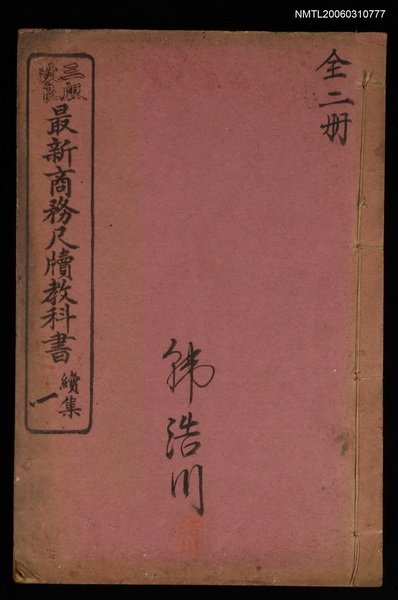 NMTL20060310777
全二册
三版
改良
最新商務尺牘教科書
續集
一
韩浩川